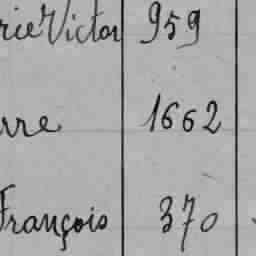 rie Victor 959
rre 1662
François 370